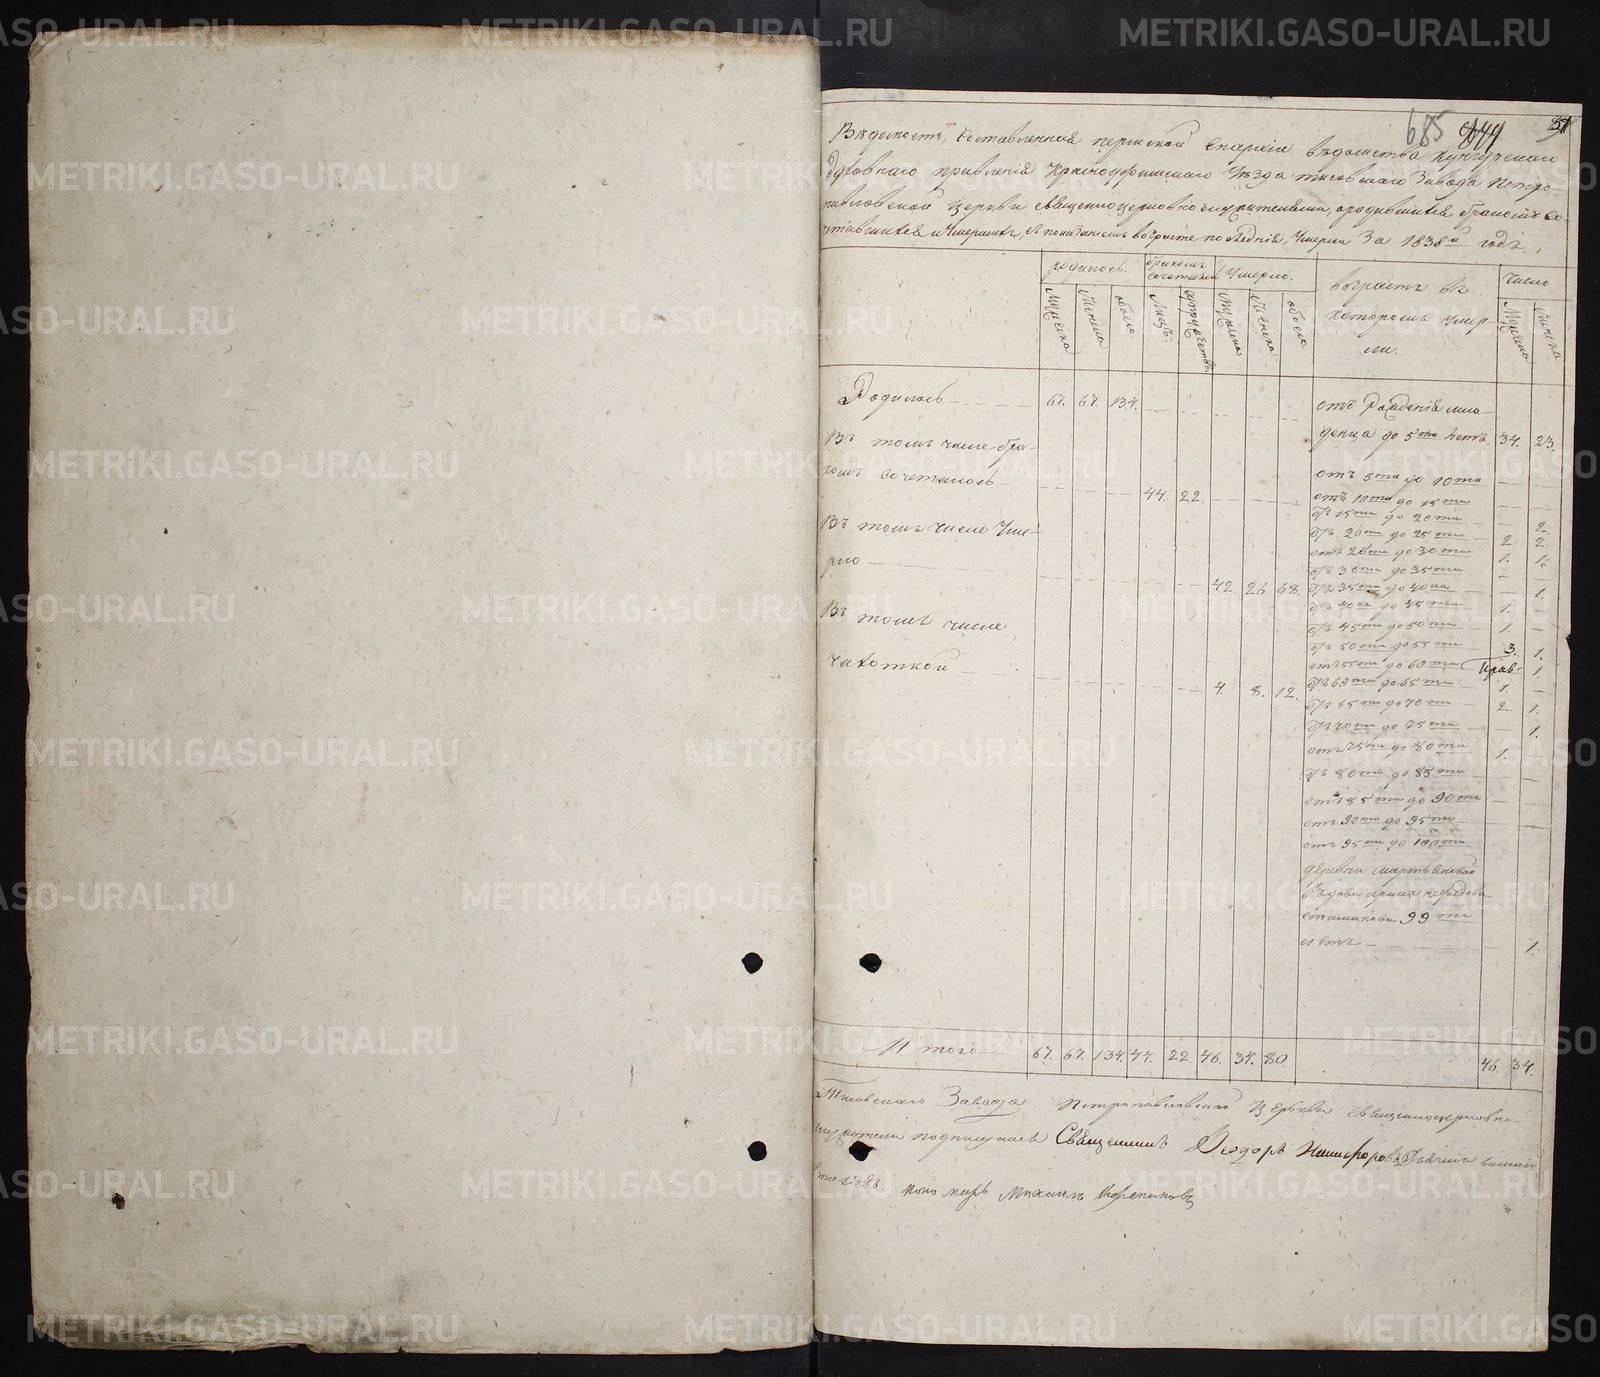 685 644 51
Вѣдомость, составленная пермской Епархіи вѣдомства Кунгурскаго
Духовнаго правленія Красноуфимскаго Уѣзда тисовскаго Завода Петро-
павловской Церкви священноцерковнослужителями, о родившихся бракомъ со-
четавшихся и Умершихъ, съ показаніемъ въ возрасте последнія, Умерли За 1838й годъ.
родилось. бракомъ сочеталось Умерло. возрастъ въ которомъ Умерли. число
Мужеска Женска обоего. Лицъ. супружествъ Мужеска Женска обоего Мужеска Женска
Родилось 67. 67. 134. отъ Рожденія мла-
денца до 5ти летъ 34. 23.
Въ томъ числе бра-
комъ сочеталось 44. 22.
отъ 5ти до 10ти
отъ 10ти до 15ти
отъ 15ти до 20ти 2.
отъ 20ти до 25ти 2 2.
Въ томъ числе Уме-
рло 42. 26. 68.
отъ 25ти до 30ти 1. 1.
отъ 30ти до 35ти
отъ 35ти до 40ка 1.
отъ 40ка до 45ти 1.
отъ 45ти до 50ти 1.
Въ томъ числе
чахоткой 4. 8. 12.
отъ 50ти до 55ти 3. 1.
отъ 55ти до 60ти 1.
отъ 60ти до 65ти 1.
отъ 65ти до 70ти 2. 1.
отъ 70ти до 75ти 1.
отъ 75ти до 80ти 1.
отъ 80ти до 85ти
отъ 85ти до 90та
отъ 90та до 95ти
отъ 95ти до 100та
деревни
вдова
99ти
летъ 1.
Итого 67. 67. 134. 44. 22. 46. 34. 80. 46. 34.
Тисовскаго Завода Петропавловской Церкви священноцерковно
служители подписуемся Священникъ Ѳеодоръ Никифоровъ
пономарь Михаилъ
METRIKI.GASO-URAL.RU